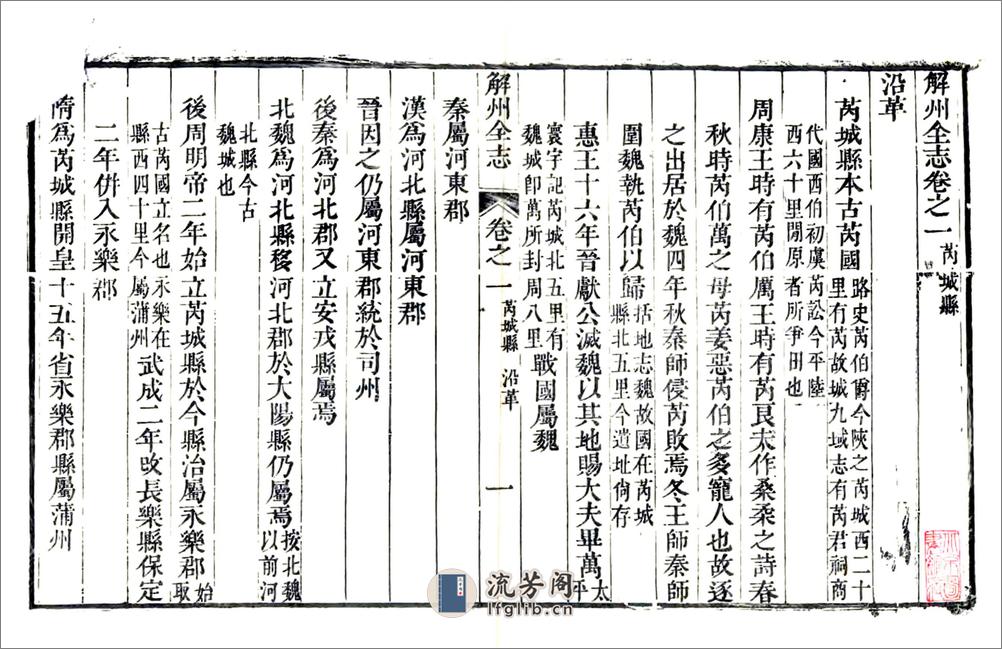 解州全志卷之一 芮城縣
沿革
芮城縣本古芮國 路史芮伯爵今陝之芮城西二十
里有芮故城九域志有芮君祠商
代國西伯初虞芮訟今平陸
西六十里閒原者所爭田也
周康王時有芮伯厲王時有芮良夫作桑柔之詩春
秋時芮伯萬之母芮姜惡芮伯之多寵人也故逐
之出居於魏四年秋秦師侵芮敗焉冬王師秦師
圍魏執芮伯以歸 括地志魏故國在芮城
縣北五里今遺址尚存
惠王十六年晉獻公滅魏以其地賜大夫畢萬 太平
寰宇記芮城北五里有
魏城卽萬所封周八里 戰國屬魏
解州全志 卷之一 芮城縣 沿革 一
秦屬河東郡
漢爲河北縣屬河東郡
晉因之仍屬河東郡統於司州
後秦爲河北郡又立安戎縣屬焉
北魏爲河北縣移河北郡於大陽縣仍屬焉 按北魏
以前河
北縣今古
魏城也
後周明帝二年始立芮城縣於今縣治屬永樂郡 始取
古芮國立名也永樂在
縣西四十里今屬蒲州 武成二年改長樂縣保定
二年併入永樂郡
隋爲芮城縣開皇十五年省永樂郡縣屬蒲州
流芳阁
lfglib.cn